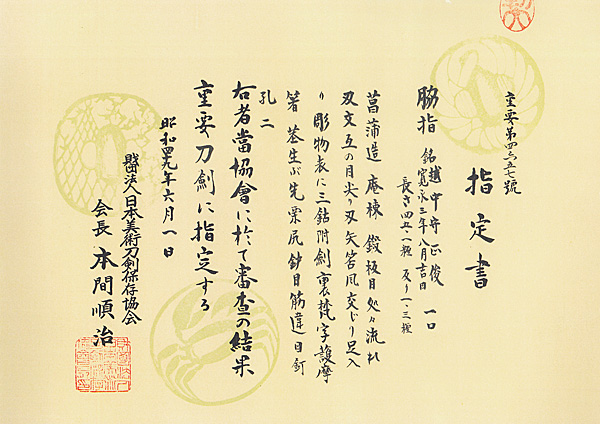 重要第四三五七號
指定書
脇指 銘 越中守正俊 一口
寛永三年八月吉日
長さ 四五・一糎 反り 一・三糎
菖蒲造 庵棟 鍛 板目処々流れ
刃文 互の目尖り刃矢筈風交じり足入
り 彫物 表に三鈷附剣裏梵字護摩
箸 茎 生ぶ先栗尻鑢目筋違目釘
孔二
右者當協會に於て審査の結果
重要刀剣に指定する
昭和四九年六月一日
財団法人日本美術刀剣保存協会
会長 本間順治